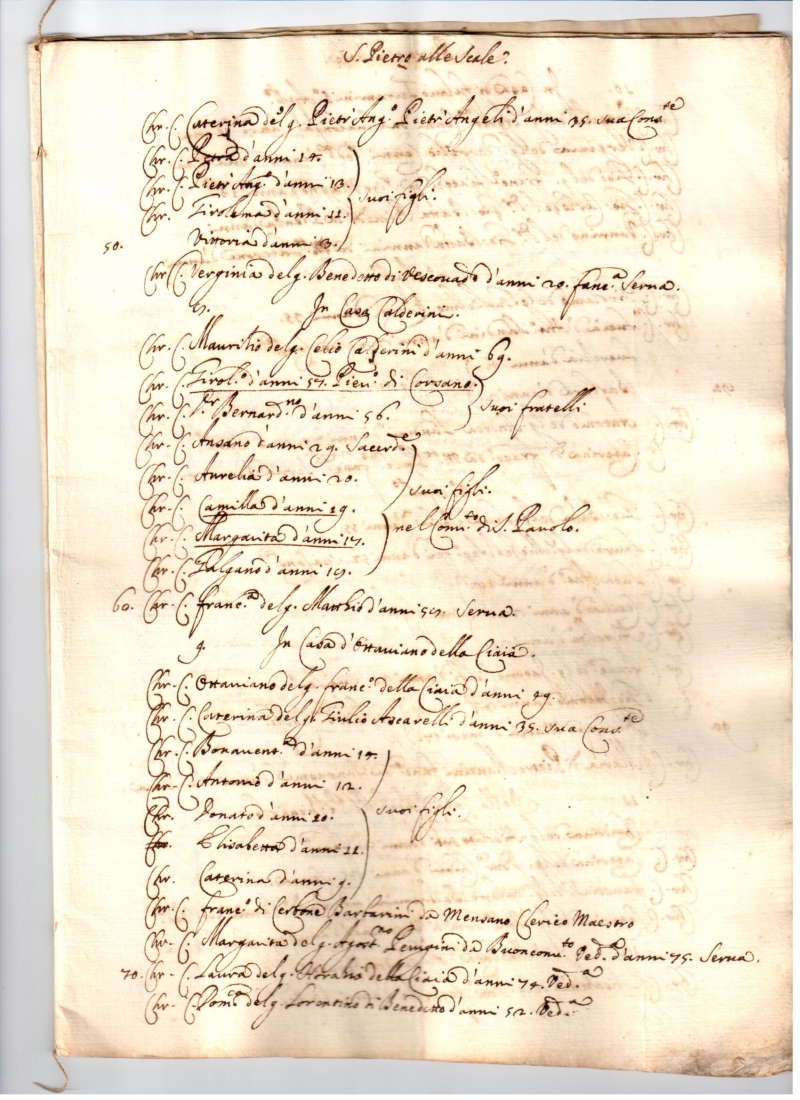 S. Pietro alle Scale.
Chr. C. Caterina del q. Pietr'Ang.o Pietr'Angeli d'anni 35. sua Cons.te
Chr. C. Petra d'anni 14.
Chr. C. Pietr'Ang.o d'anni 13.
Chr. Girolama d'anni 11. suoi figli.
50. Vittoria d'anni 3.
Chr. C. Verginia del q. Benedetto di Vescovado d'anni 20. fanc.a Serva.
In Casa Calderini.
Chr. C. Mauritio del q. Celio Calderini d'anni 69.
Chr. C. Girol.o d'anni 57. Piev.o di Corsano.
Chr. C. Bernard.no d'anni 56. suoi fratelli
Chr. C. Ansano d'anni 29. Sacerd.e
Chr. C. Aurelia d'anni 20. suoi figli.
Chr. C. Camilla d'anni 19.
Chr. C. Margarita d'anni 17. nel Conv.to di S. Pavolo.
Chr. C. Galgano d'anni
60. Chr. C. Franc.a del q. Matthio d'anni Serva.
9. In Casa d'Ottaviano della Ciaia.
Chr. C. Ottaviano del q. Franc.o della Ciaia d'anni 49.
Chr. C. Caterina del q. Giulio Ascarelli d'anni 35. sua Cons.te
Chr. C. Bonavent.a d'anni 14.
Chr. C. Antonio d'anni 12.
Chr. Donato d'anni 10. suoi figli.
Chr. Elisabetta d'anni 11.
Chr. Caterina d'anni 9.
Chr. C. Franc.o di Cerbone Barbarini da Mensano Clerico Maestro
Chr. C. Margarita del q. Agost.no Perugini da Buonconv.to Ved.a d'anni 75. Serva.
70. Chr. C. Laura del q. Horatio della Ciaia d'anni 74. Ved.a
Chr. C. Dom.ca del q. Lorentino di Benedetto d'anni 52. Ved.a